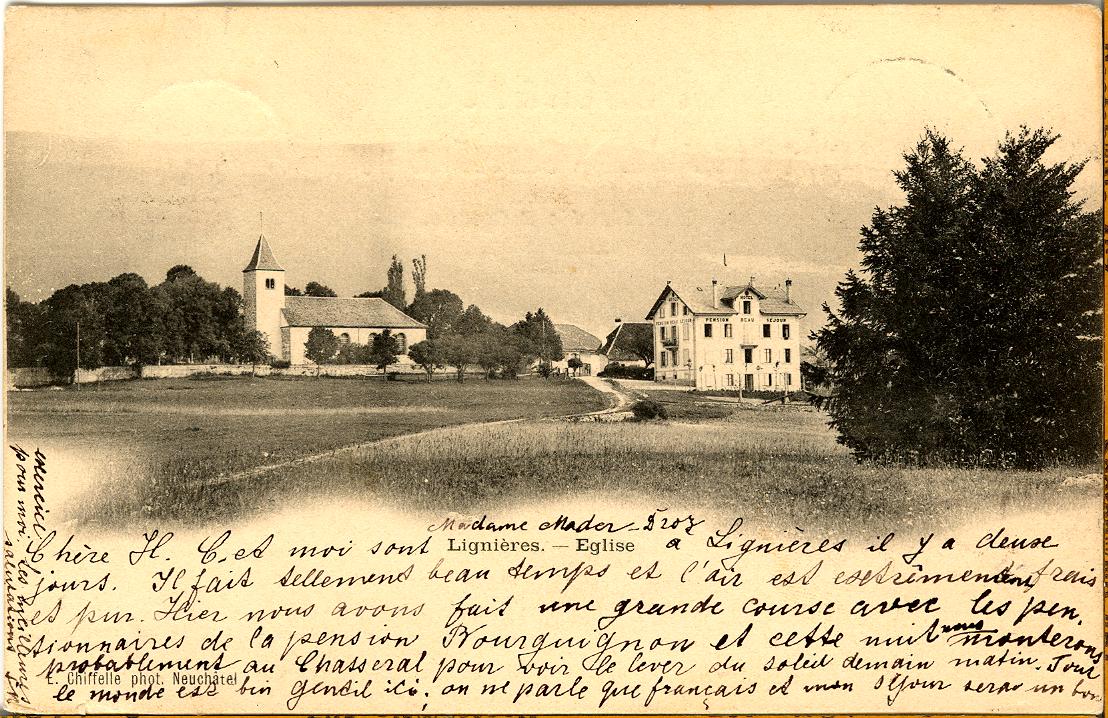 HOTEL
PENSION BEAU SÉJOUR
PENSION BEAU SÉJOUR
Madame Mader-Droz
Lignières. — Eglise
Chère H. C. et moi sont à Lignières il y a deuse
jours. Il fait tellement beau temps et l'air est exetrêmement frais
et pur. Hier nous avons fait une grande course avec les pen.
sionnaires de la pension Bourguignon et cette nuit nous monterons
probablement au Chasseral pour voir le lever du soleil demain matin. Tout
E. Chiffelle phot. Neuchâtel
le monde est bin gentil ici; on ne parle que français et mon séjour serar un bon
exercice
pour moi. Les meilleures
salutations